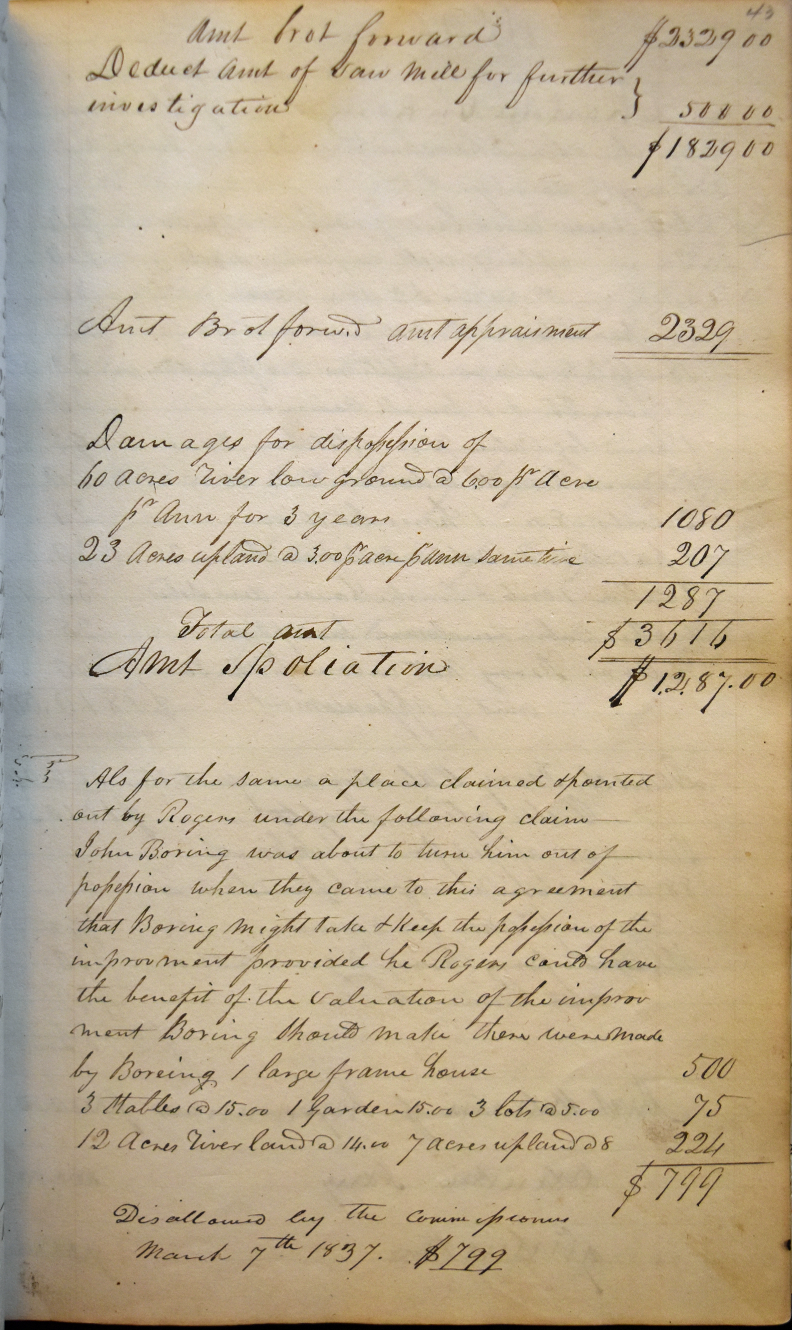 43
Amt brot forward $2329 00
Deduct Amt of Saw Mill for further
investigation } 500 00
$1829 00
Amt Brot forwd amt appraisment 2329
Damages for dispossession of
60 Acres River low ground @ 6.00 pr Acre
pr Ann for 3 years 1080
23 Acres upland @ 3.00 pr acre pr ann same time 207
1287
Total amt $3616
Amt Spoliation $1287.00
Als for the same a place claimed & pointed
out by Rogers under the following claim
John Boring was about to turn him out of
possession when they came to this agreement
that Boring might take & keep the possession of the
improvment provided he Rogers could have
the benefit of the valuation of the improv
ment Boring should make there were made
by Boreing 1 large frame house 500
3 Stables @ 15.00 1 Garden 15.00 3 lots @ 5.00 75
12 Acres River land @ 14.00 7 acres upland @ 8 224
$799
Disallowed by the commissioners
March 7th 1837. $799